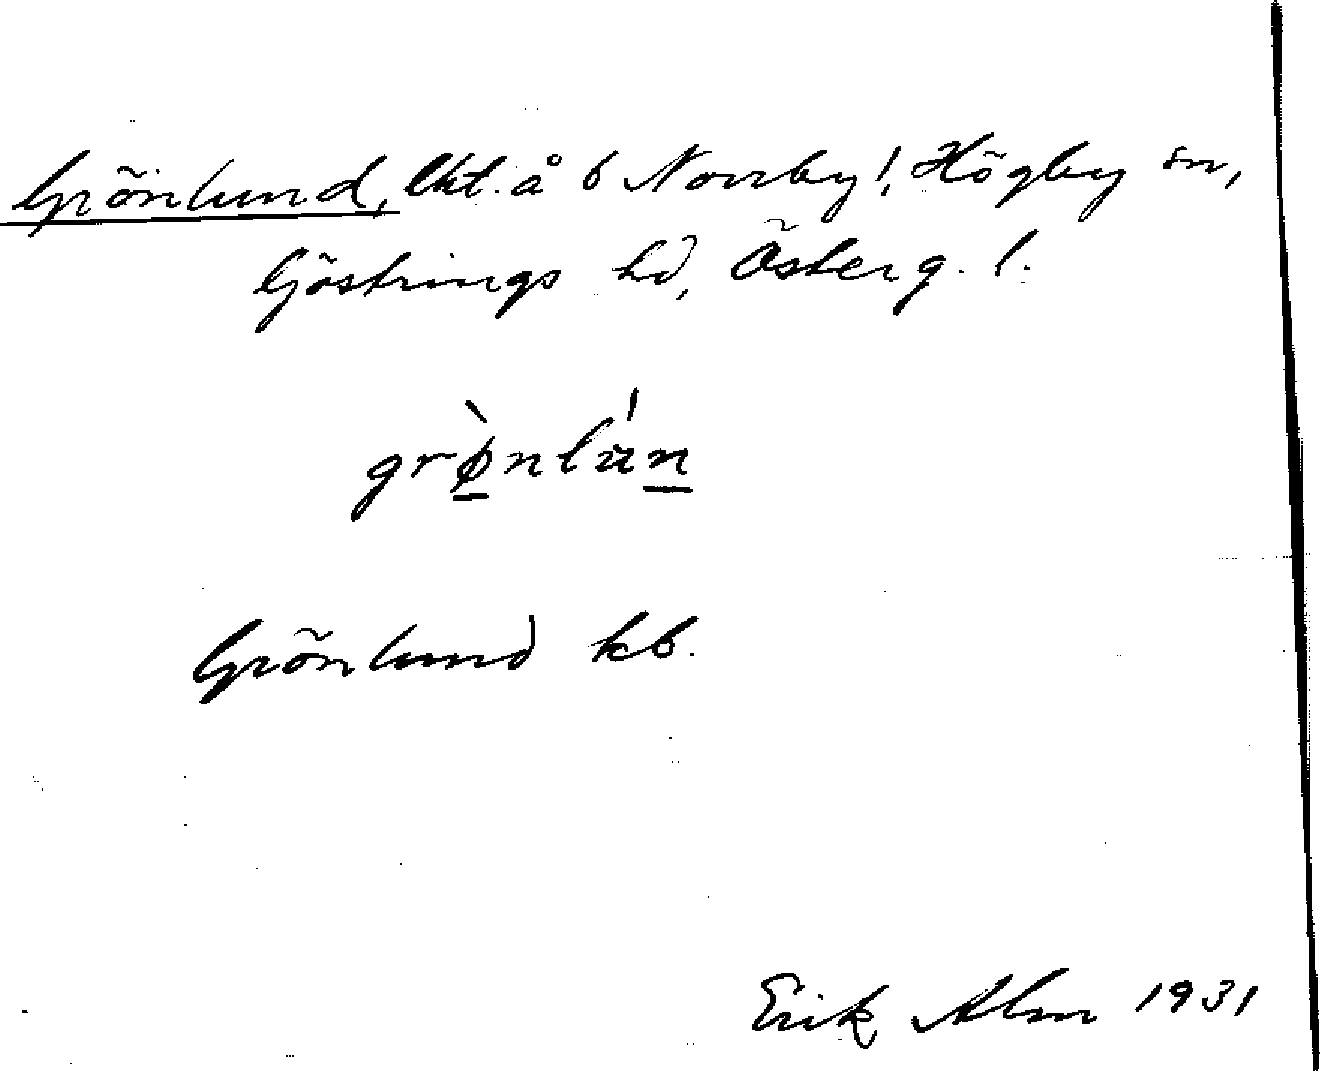 Grönlund, lht. å 6 Norrby!, Högby sn,
Göstrings hd, Österg. l.
grø̀nlún
Grönlund kb.
Erik Alm 1931